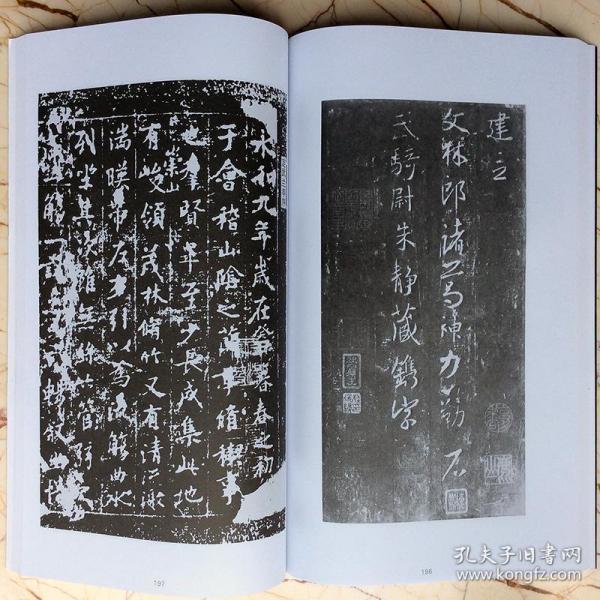 建立
文林郎諸葛神力勒石
武騎尉朱静藏鐫字
196
永和九年歲在癸暮春之初
于會稽山陰之蘭亭脩禊事
也羣賢畢至少長咸集此地
崇山
有峻領茂林脩竹又有清流激
湍暎帶左右引以為流觴曲水
列坐其次雖無絲竹管弦之
敘幽情
197
孔夫子旧书网
www.kongfz.com